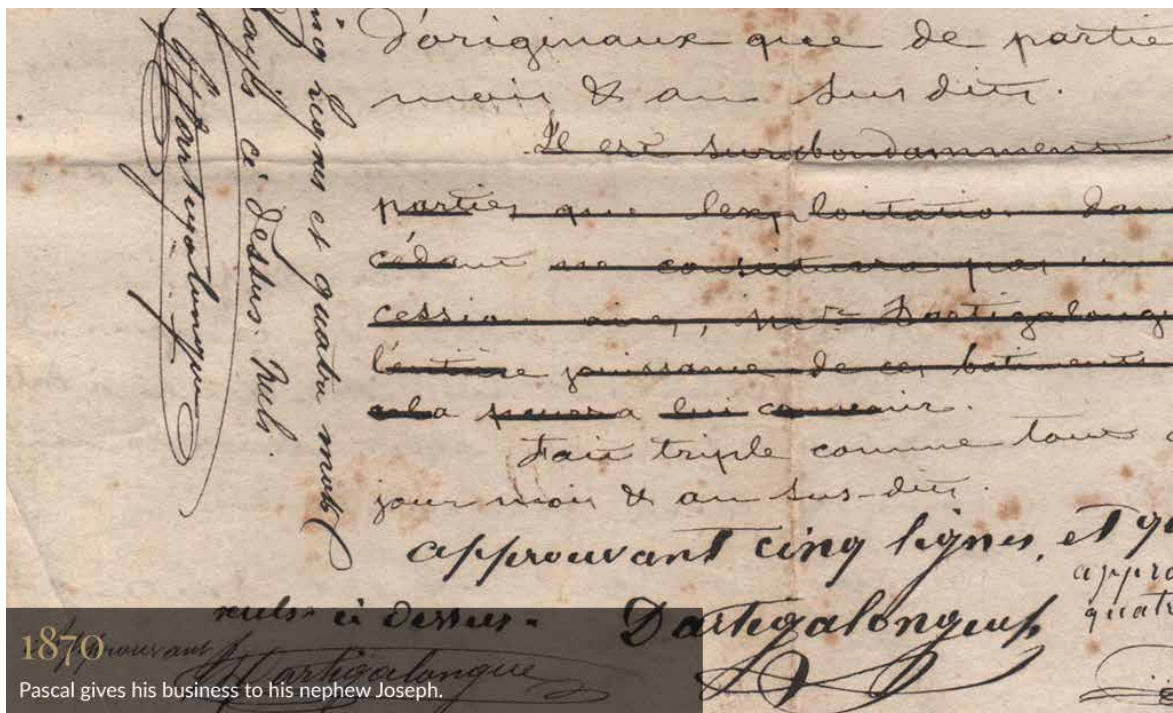 d'originaux que de partie
mois & an sus dits.
Il est surabondamment
parties que l'exploitation dan
cédant ne constituera pas un
cession avec, Mr Dartigalongue
l'entière jouissance de ces batiments
cela pourra lui convenir.
Fait triple comme tous
jour mois & an sus-dits.
approuvant cinq lignes, et qu
nuls ci dessus.
Dartigalongue
appro
quat
approuvant
Dartigalongue
inq lignes et quatre mots
rayés ci dessus nuls
Dartigalongue
1870
Pascal gives his business to his nephew Joseph.